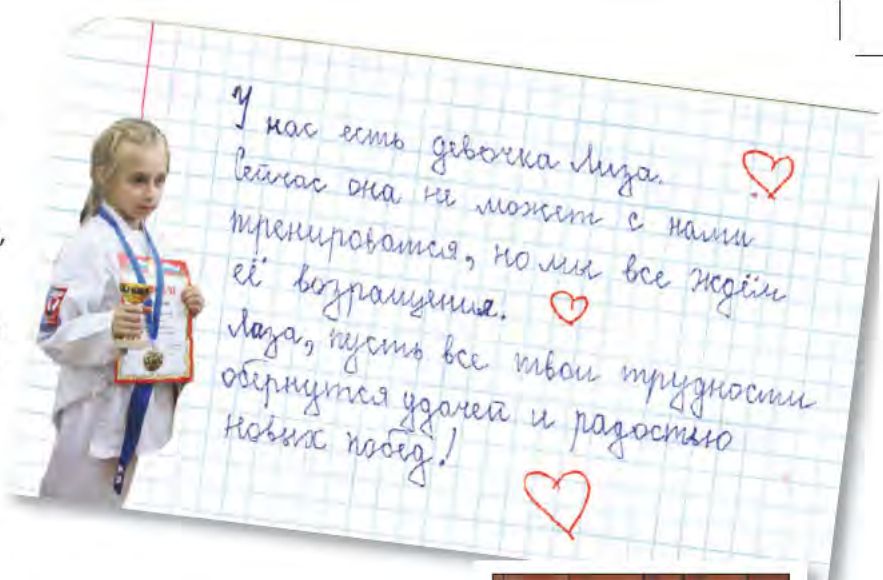 У нас есть девочка Лиза.
Сейчас она не может с нами
тренироваться, но мы все ждём
её возращения.
Лиза, пусть все твои трудности
обернутся удачей и радостью
новых побед!